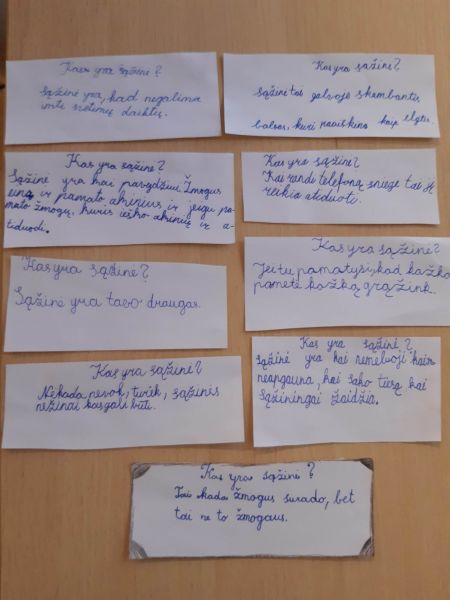 Kas yra sąžinė?
Sąžinė yra, kad negalima
imti svetimų daiktų.
Kas yra sąžinė?
Sąžinė tai galvoje skambantis
balsas, kuri paaiškina kaip elgtis
Kas yra sąžinė?
Sąžinė yra kai pavyzdžiui Žmogus
eina ir pamato akinius ir jeigu pa-
mato žmogų, kuris ieško akinių ir a-
tiduodi.
Kas yra sąžinė?
Kai randi telefoną sniege tai jį
reikia atiduoti.
Kas yra sąžinė?
Sąžinė yra tavo draugas.
Kas yra sąžinė?
Jei tu pamatysi, kad kažkas
pametė kažką grąžink.
Kas yra sąžinė?
Nekada nevok, turėk, sąžinės
nežinai kas gali būti.
Kas yra sąžinė?
Sąžinė yra kai nemeluoji kai
neapgauna, kai sako tiesą kai
sąžiningai žaidžia.
Kas yra sąžinė?
Tai kada žmogus surado, bet
tai ne to žmogaus.